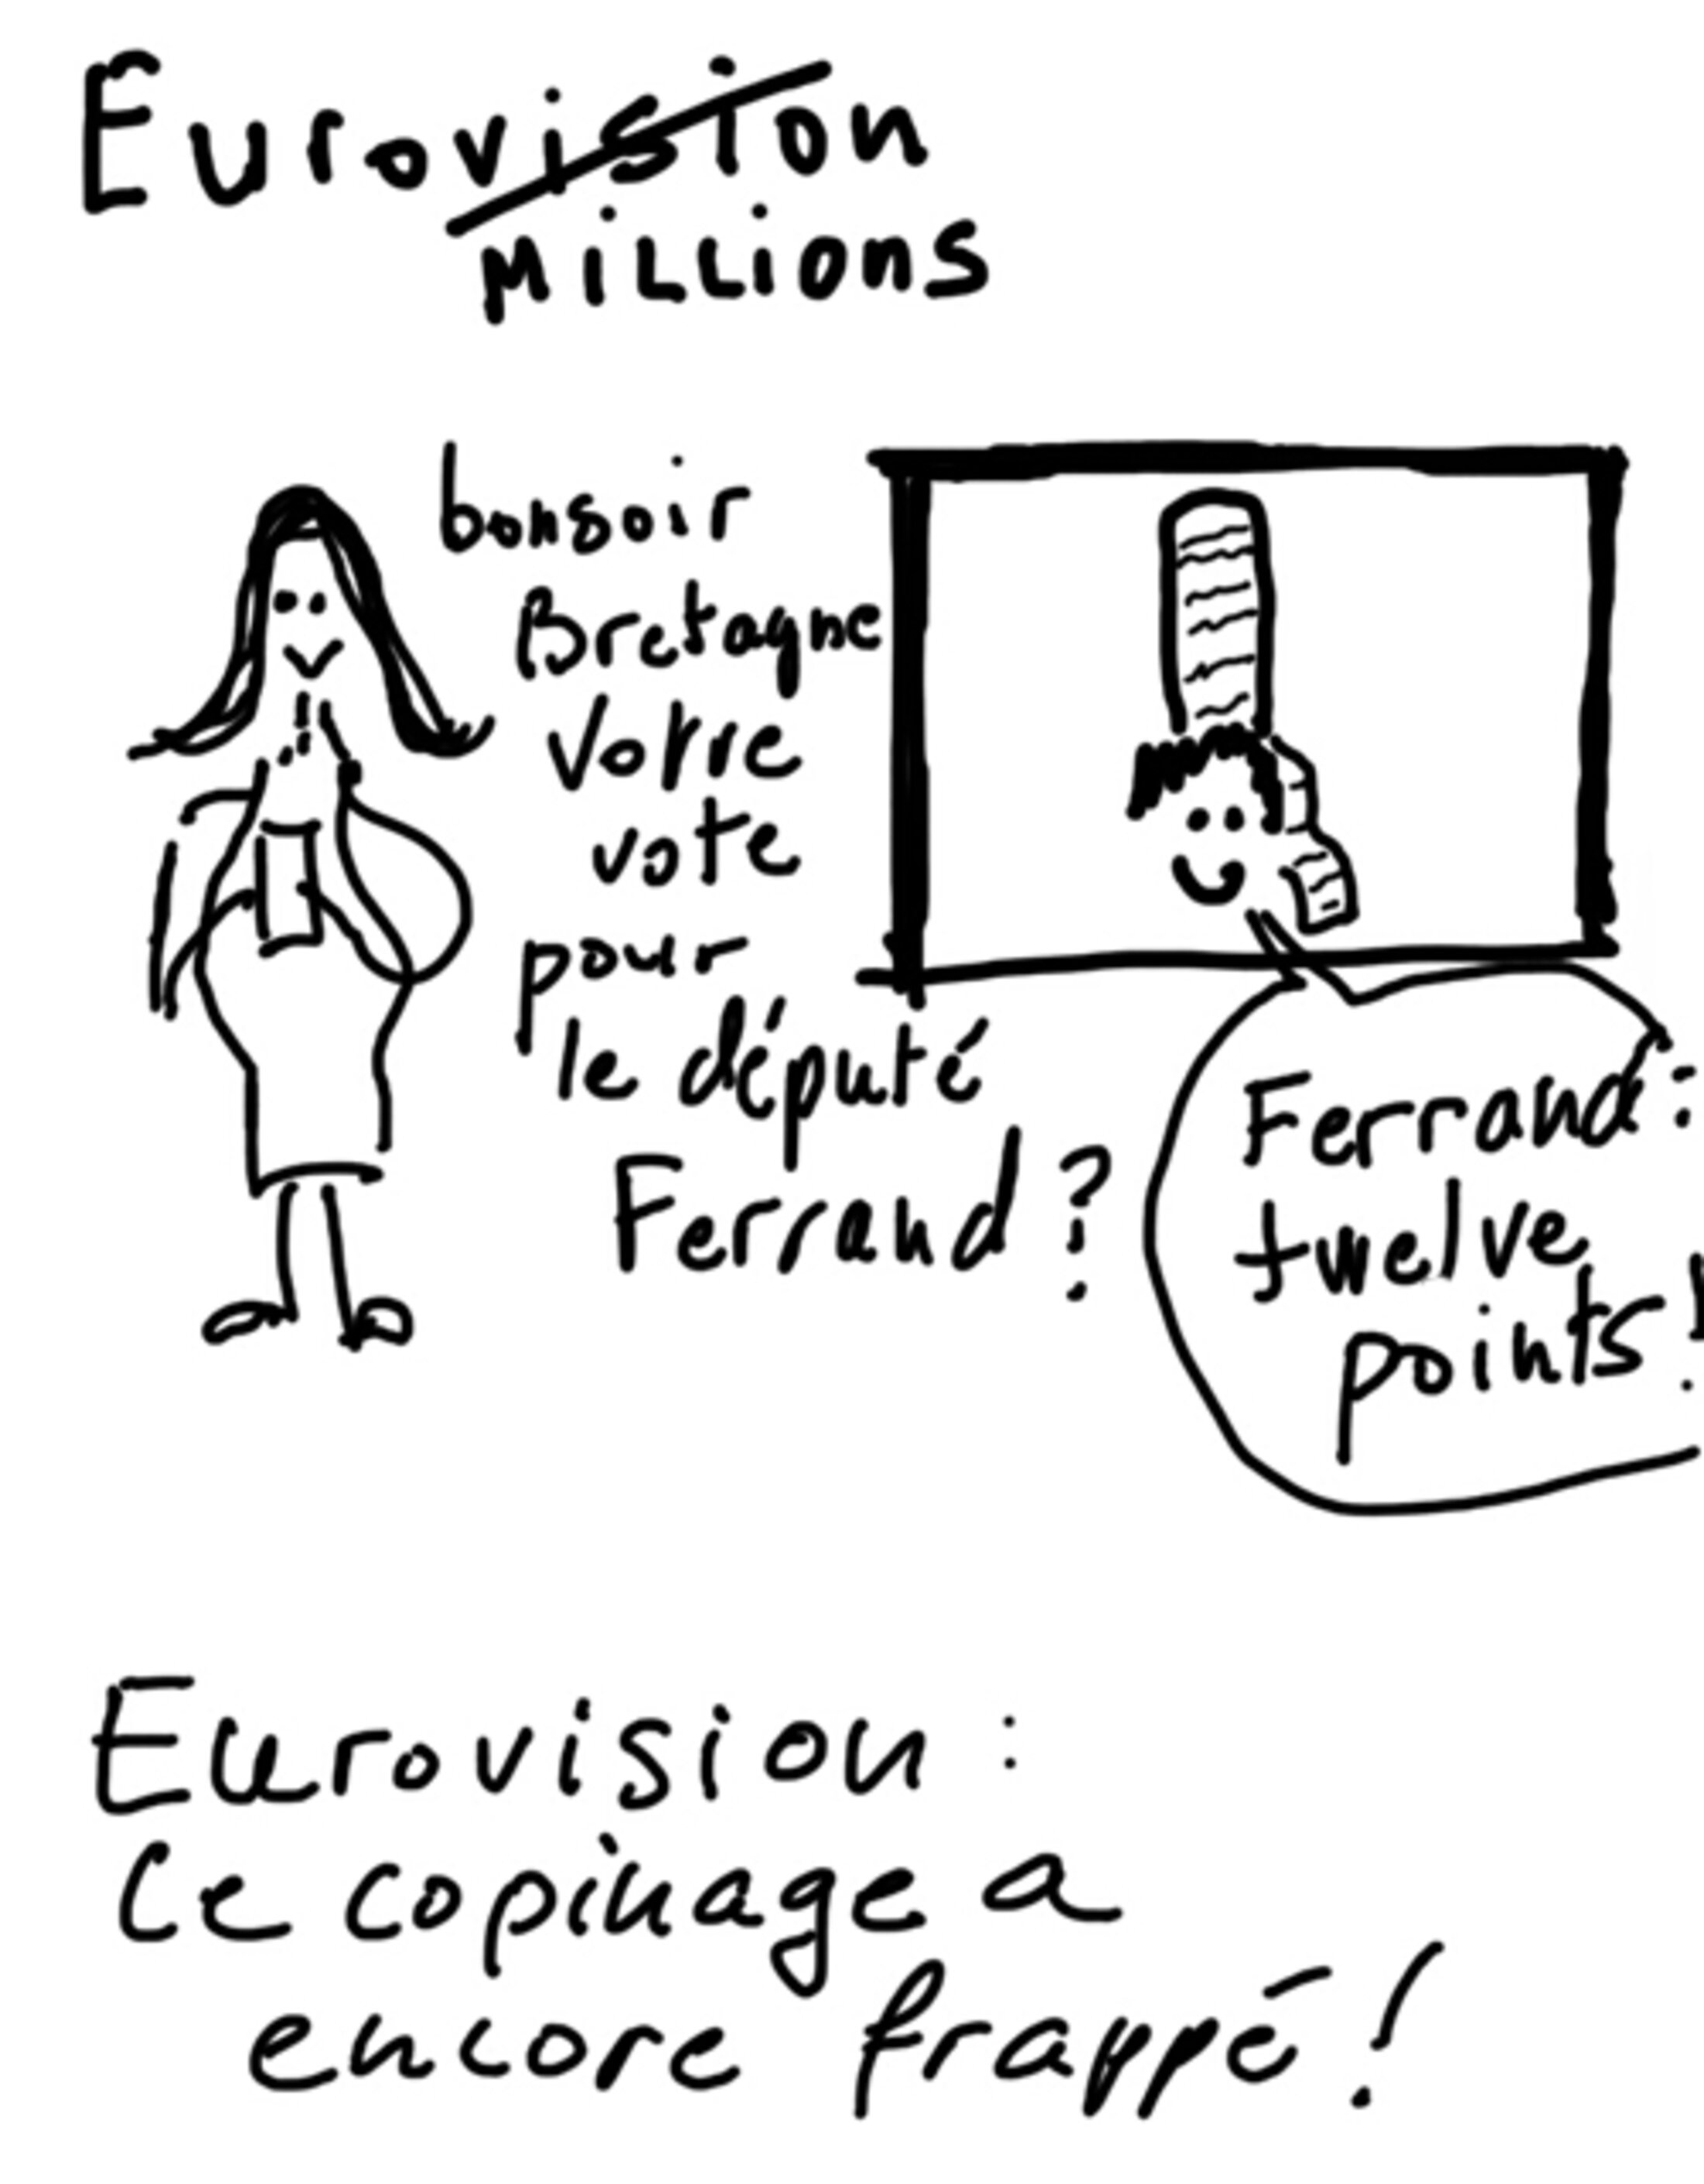 Eurovision
Millions
bonsoir
Bretagne
votre
vote
pour
le député
Ferrand ?
Ferrand :
twelve
points !
Eurovision :
Le copinage a
encore frappé !